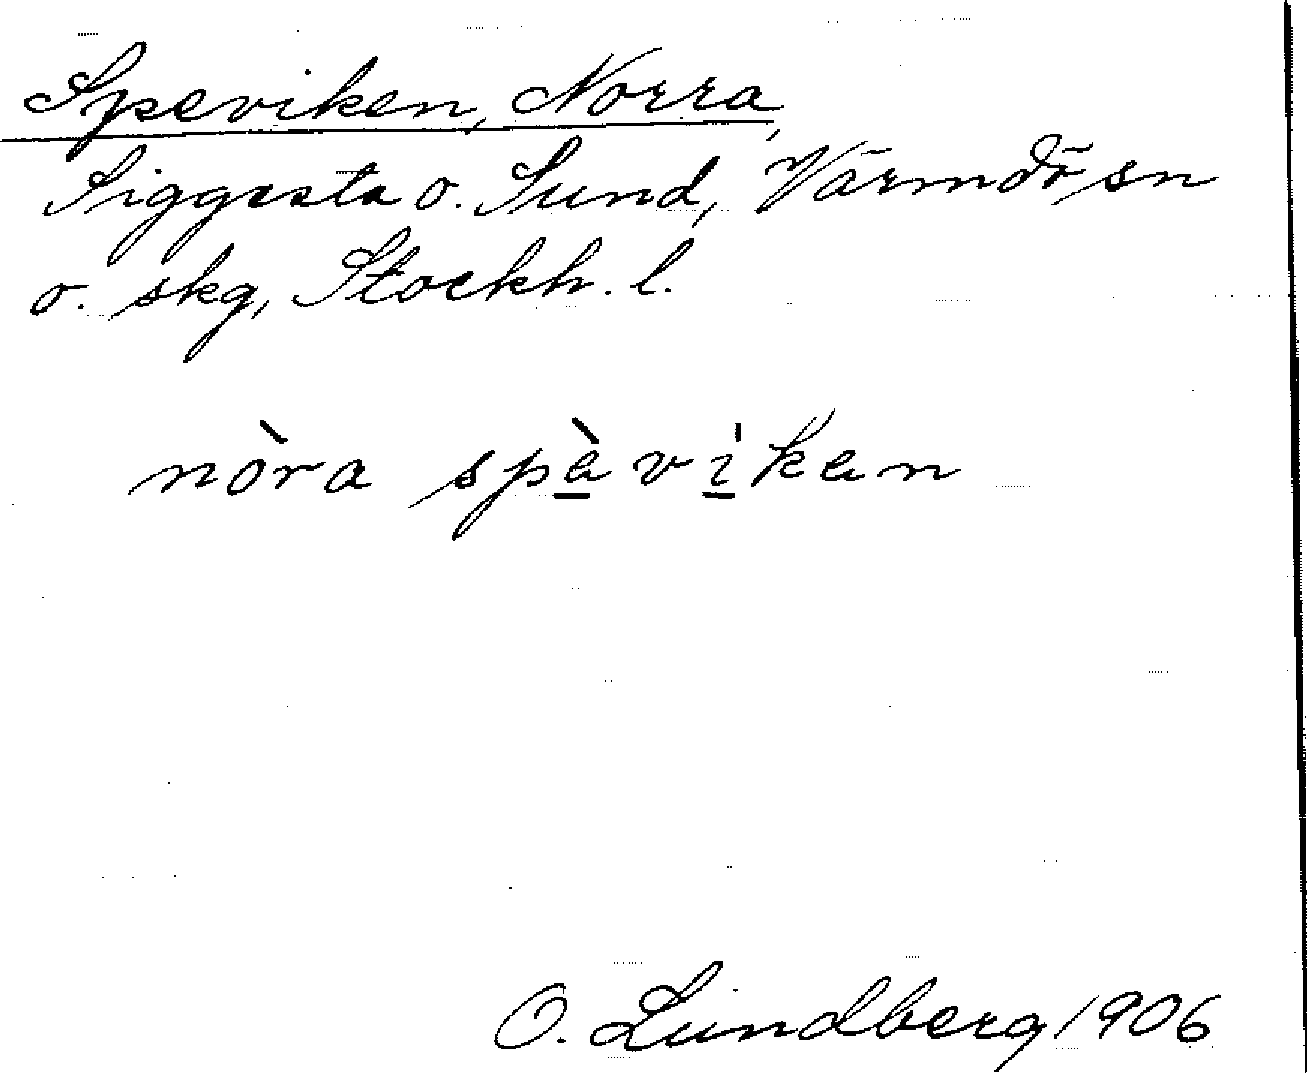 Speviken, Norra,
Siggesta o. Sund, Värmdö sn
o. skg, Stockh. l.
nòra spè̱vi̱̍ken
O. Lundberg 1906